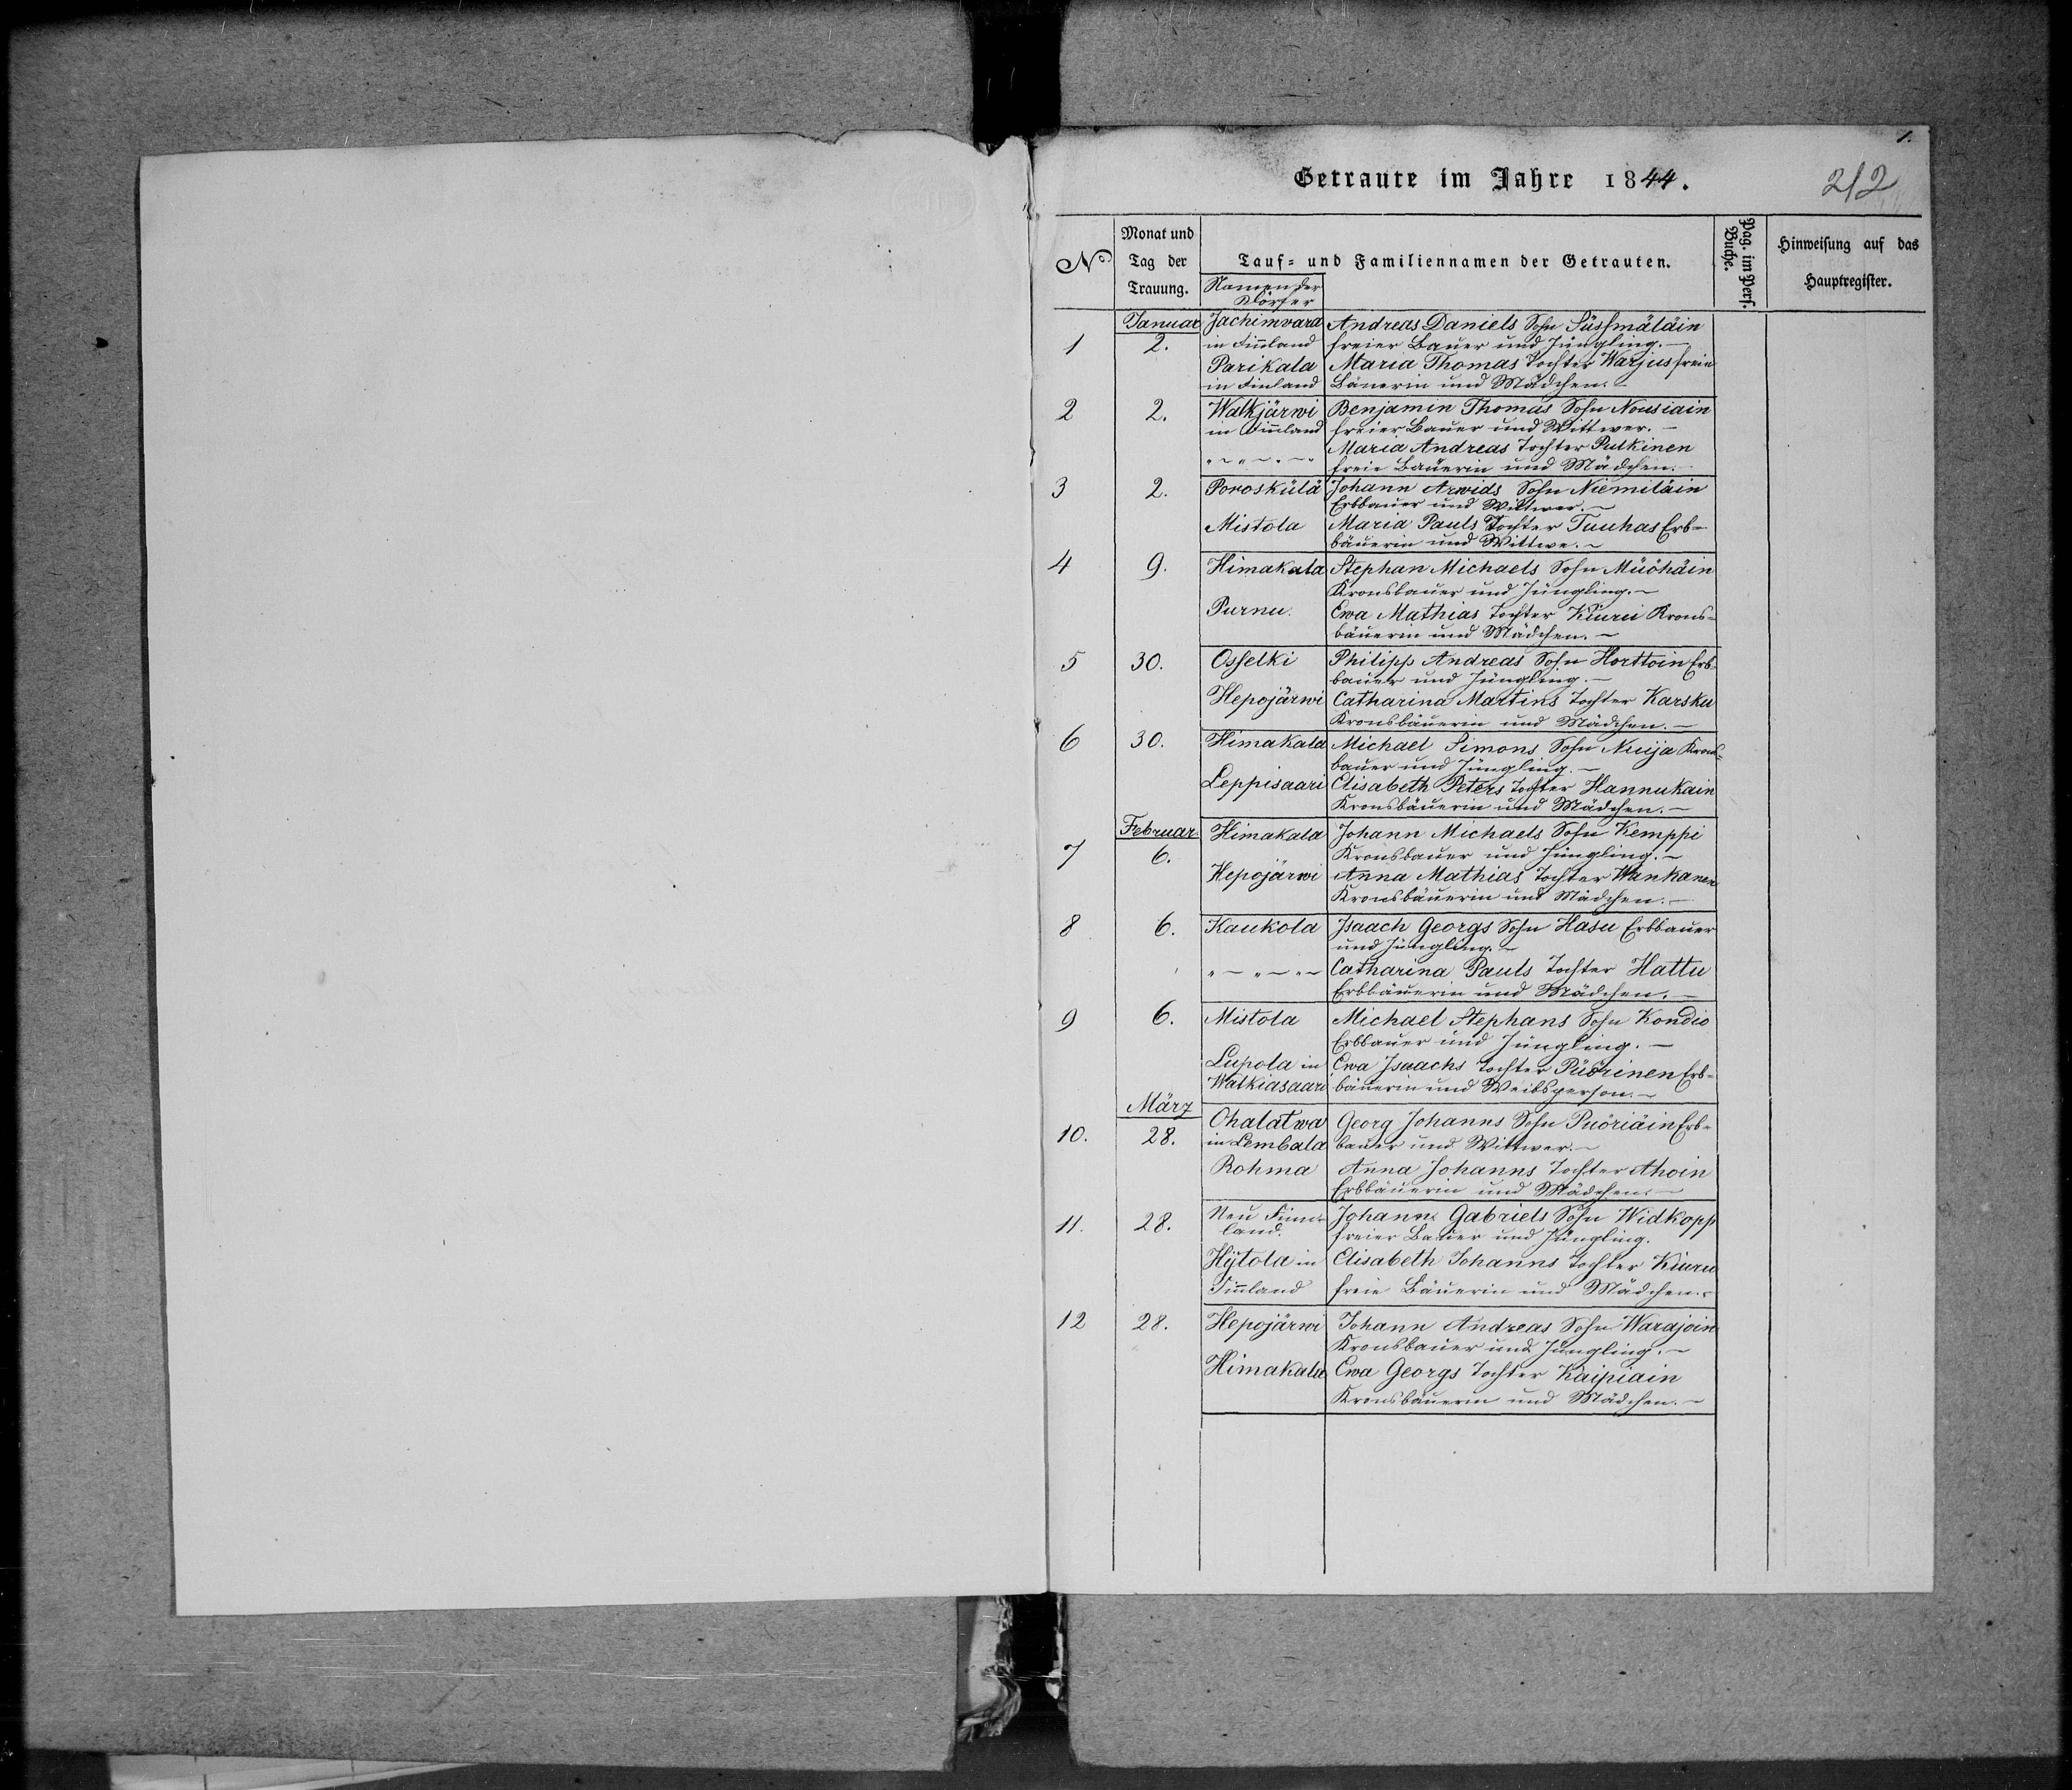 1.
Getraute im Jahre 1844.
212
No
Monat und Tag der Trauung.
Tauf- und Familiennamen der Getrauten.
Pag. im Pers. Buche.
Hinweisung auf das Hauptregister.
Namen der Dörfer
Januar Jachimvara Andreas Daniels Sohn Süssmäläin
1 2. in Finnland freier Bauer und Jüngling. —
Parikala Maria Thomas Tochter Warjus freie
in Finland Bäuerin und Mädchen. —
2 2. Walkjärwi Benjamin Thomas Sohn Nousiain
in Finnland freier Bauer und Wittwer. —
„ — „ — „ — „ Maria Andreas Tochter Pulkinen
freie Bäuerin und Mädchen. —
3 2. Poroskülä Johann Arwids Sohn Niemiläin
Erbbauer und Wittwer. —
Mistola Maria Pauls Tochter Tuuhas Erb-
bäuerin und Wittwe. —
4 9. Himakala Stephan Michaels Sohn Müöhäin
Kronsbauer und Jüngling. —
Purnu. Ewa Mathias Tochter Kiuru Krons-
bäuerin und Mädchen. —
5 30. Osselki Philipp Andreas Sohn Horttoin Erb-
bauer und Jüngling. —
Hepojärwi Catharina Martins Tochter Karsku
Kronsbäuerin und Mädchen. —
6 30. Himakala Michael Simons Sohn Nuija Krons-
bauer und Jüngling. —
Leppisaari Elisabeth Peters Tochter Hannukain
Kronsbäuerin und Mädchen. —
Februar Himakala Johann Michaels Sohn Kemppi
7 6. Kronsbauer und Jüngling. —
Hepojärwi Anna Mathias Tochter Wankanen
Kronsbäuerin und Mädchen. —
8 6. Kaukola Isaach Georgs Sohn Hasu Erbbauer
und Jüngling. —
„ — „ — „ — Catharina Pauls Tochter Hattu
Erbbäuerin und Mädchen. —
9 6. Mistola Michael Stephans Sohn Kondio
Erbbauer und Jüngling. —
Lupola in Ewa Isaachs Tochter Püörinen Erb-
Walkiasaari bäuerin und Weibsperson. —
März
Ohalatwa Georg Johanns Sohn Puöriäin Erb-
10. 28. in Lembala bauer und Wittwer. —
Rohma Anna Johanns Tochter Ahoin
Erbbäuerin und Mädchen. —
11. 28. Neu Finn- Johann Gabriels Sohn Widkopp
land. freier Bauer und Jüngling.
Hijtola in Elisabeth Johanns Tochter Kiuru
Finnland freie Bäuerin und Mädchen. —
12 28. Hepojärwi Johann Andreas Sohn Warajoin
Kronsbauer und Jüngling. —
Himakala Ewa Georgs Tochter Kaipiain
Kronsbäuerin und Mädchen. —